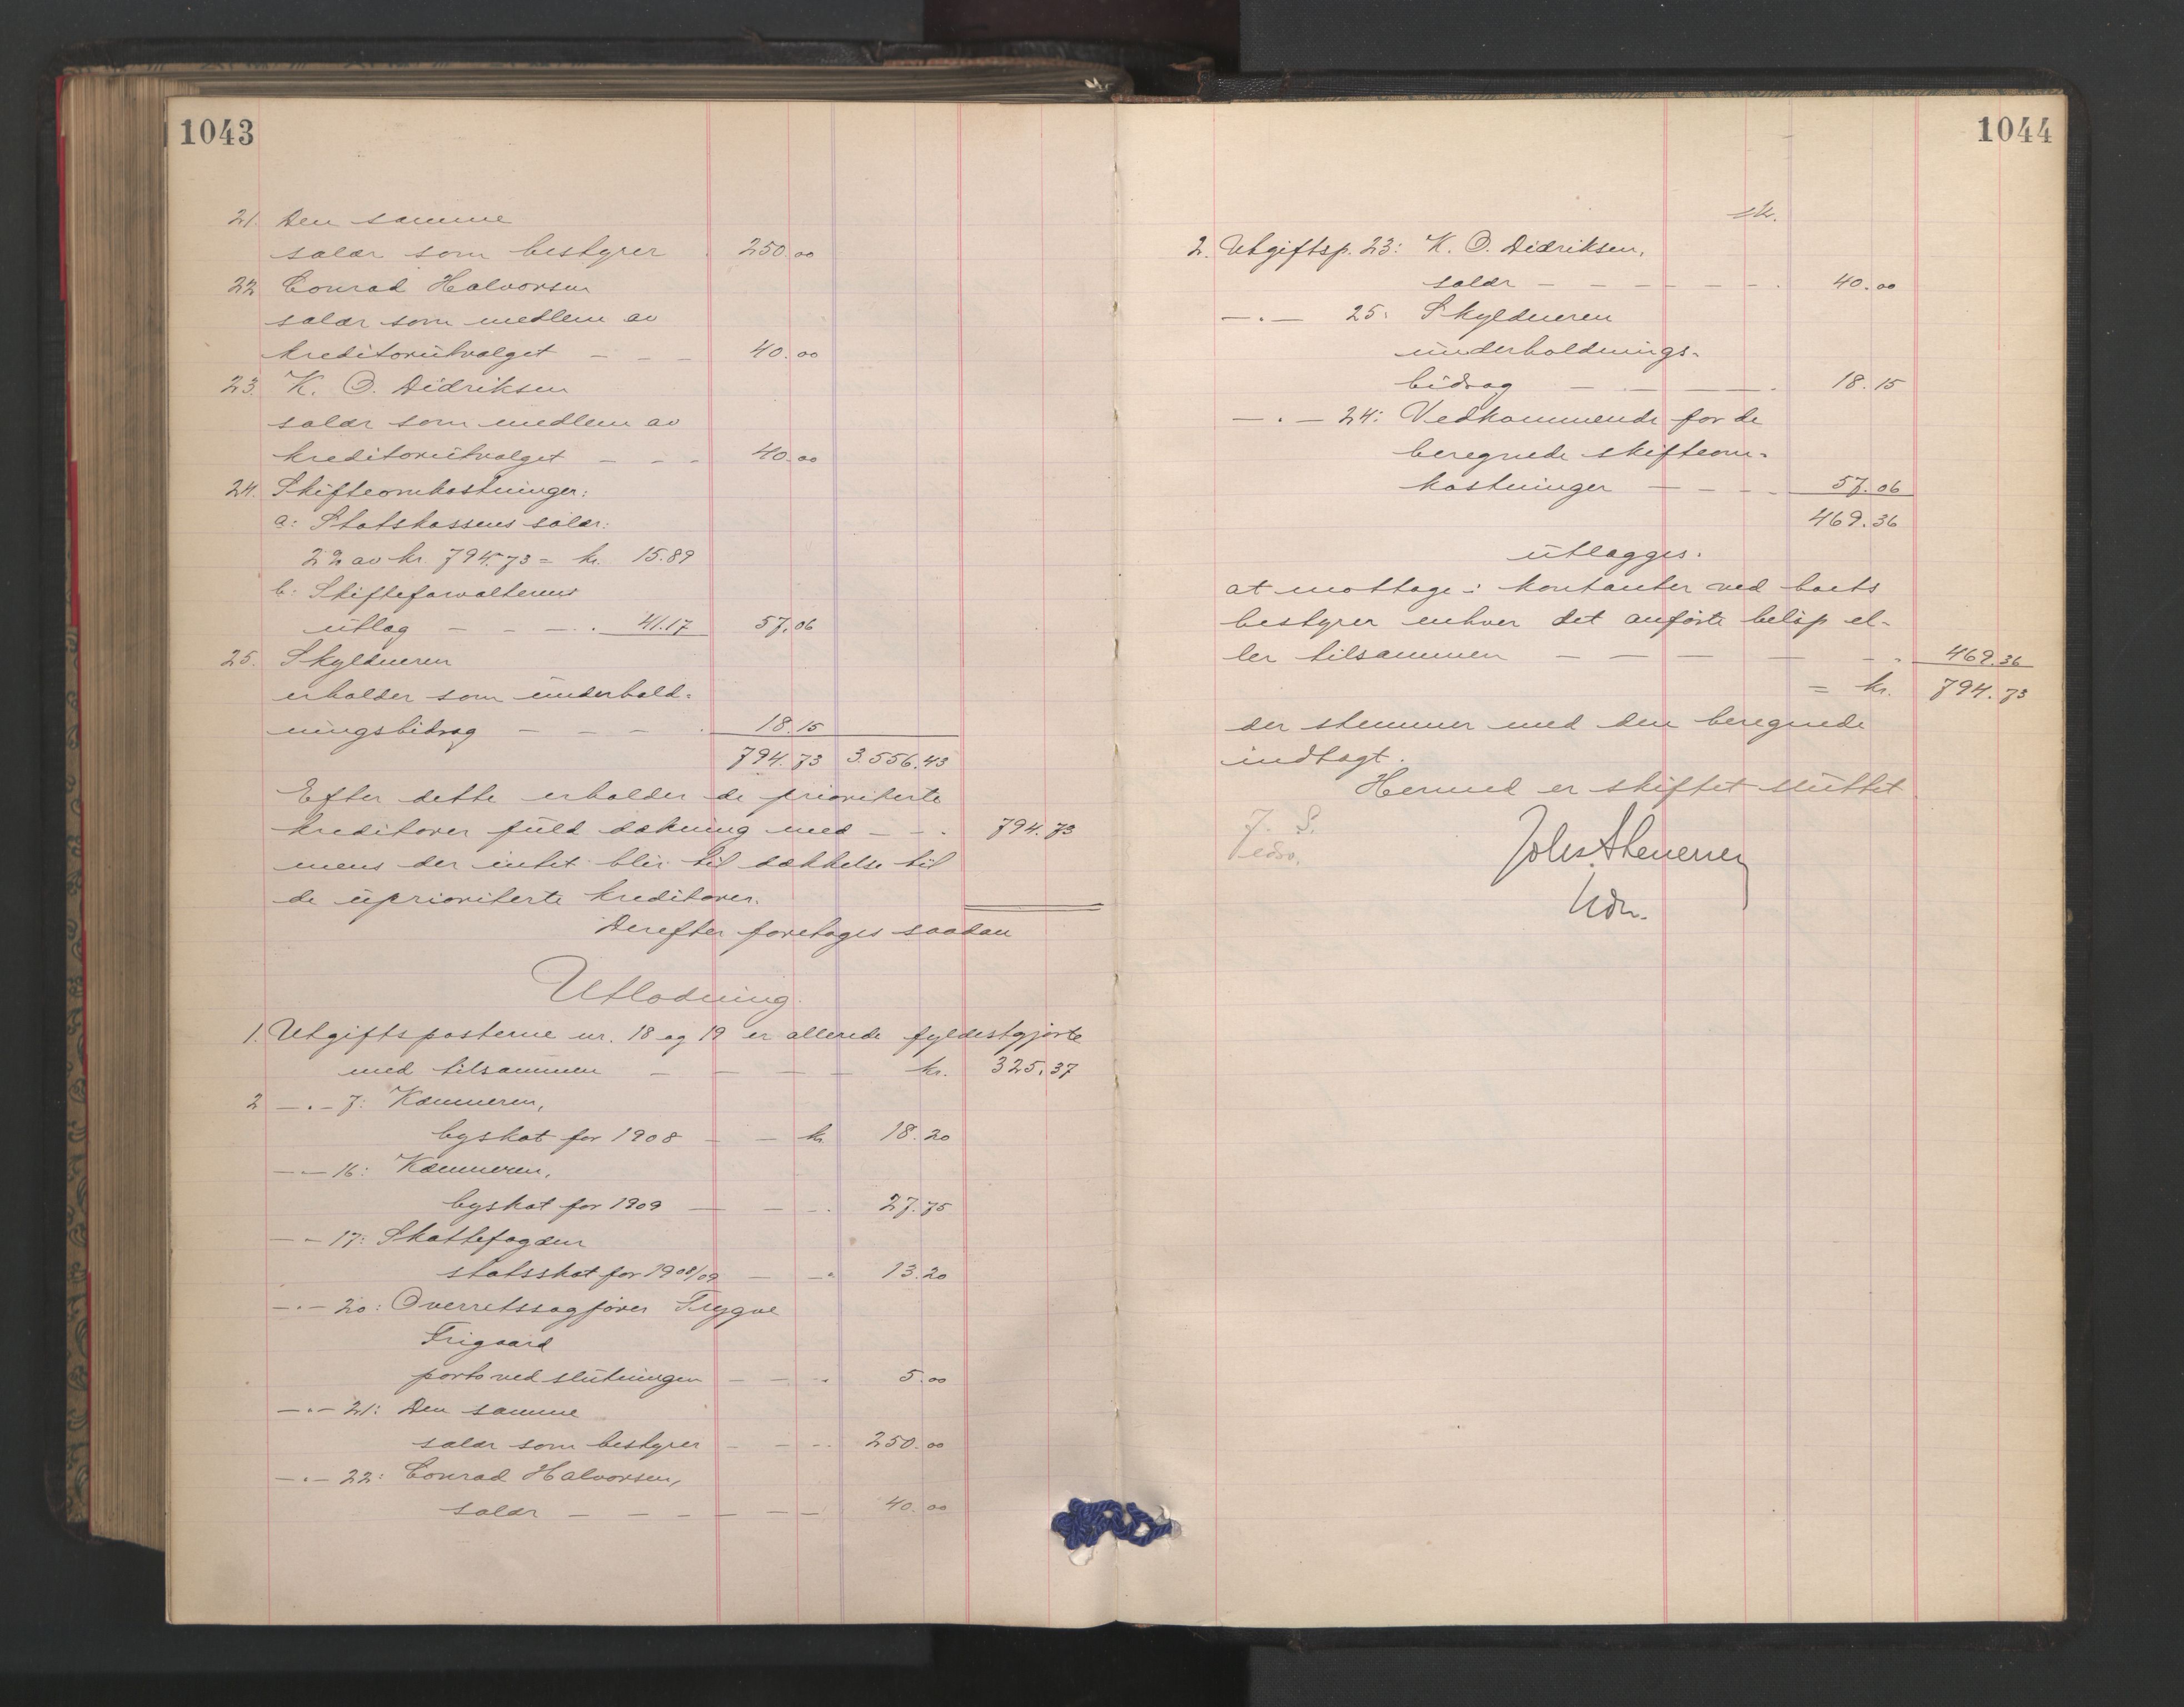 1043
21. Den samme
salær som bestyrer . 250.00
22 Conrad Halvorsen
salær som medlem av
kreditorutvalget — — — 40.00
23. K. O. Didriksen
salær som medlem av
kreditorutvalget — — — 40.00
24. Skifteomkostninger:
a: Statskassens salær:
2% av kr. 794.73 = kr. 15.89
b: Skifteforvalterens
utlæg — — — . 41.17 57.06
25. Skyldneren
erholder som underhold-
ningsbidrag — — — . 18.15
794.73 3.556.43
Efter dette erholder de prioriterte
kreditorer fuld dækning med — — . 794.73
mens der intet blir til dækkelse til
de uprioriterte kreditorer.
Derefter foretages saadan
Utlodning.
1. Utgiftsposterne nr. 18 og 19 er allerede fyldestgjorte
med tilsammen — — — — kr. 325.37
2 —.— 7: Kæmneren,
byskat for 1908 — — kr. 18.20
—.— 16: Kæmneren,
byskat for 1909 — — —. 27.75
—.— 17: Skattefogden
statsskat for 1908/09 — —. 13.20
—.— 20: Overretssagfører Trygve
Frigaard
porto ved slutningen — — . 5.00
—.— 21: Den samme
salær som bestyrer — — —. 250.00
—.— 22: Conrad Halvorsen,
salær — — — — — — 40.00
1044
kr.
2. Utgiftsp. 23: K. O. Didriksen,
salær — — — — — — . 40.00
—.— 25: Skyldneren
underholdnings-
bidrag — — — — . 18.15
—.— 24: Vedkommende for de
beregnede skifteom-
kostninger — — — — 57.06
469.36
utlægges.
at mottage i kontanter ved boets
bestyrer enhver det anførte beløp el-
ler tilsammen — — — — — . 469.36
= kr. 794.73
der stemmer med den beregnede
indtægt.
Hermed er skiftet sluttet